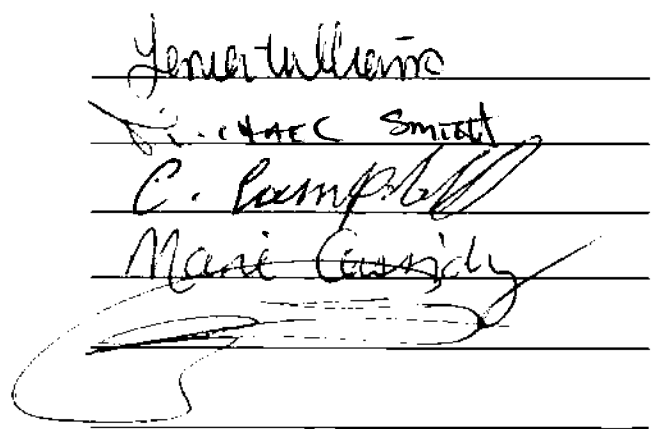 Williams
Michael Smith
C. Campbell
Marie Cassidy